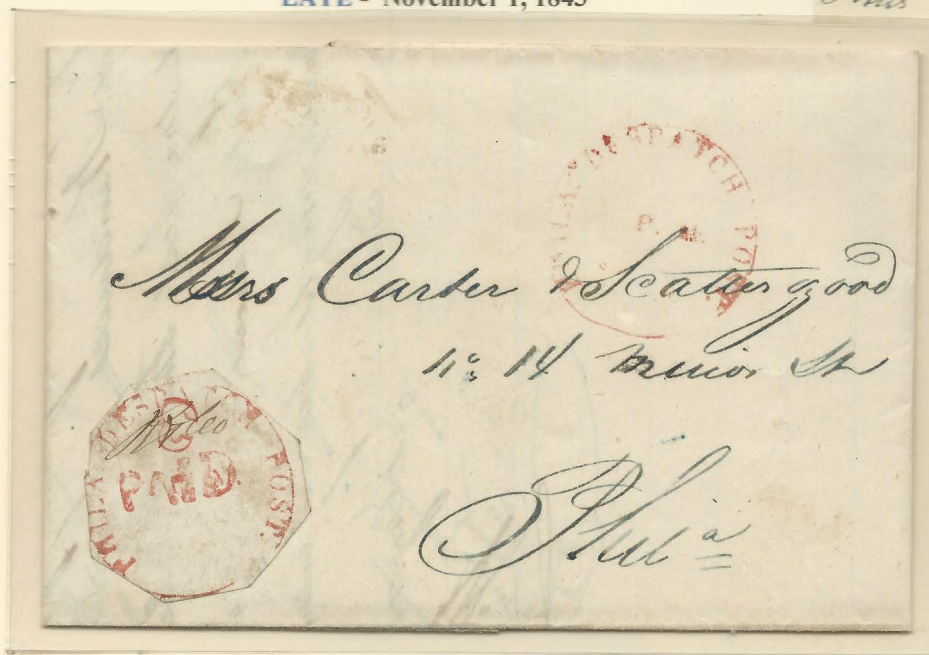 LATE - November 1, 1843
PHILA DESPATCH POST.
P. M.
Messrs Carter & Scattergood
No 14 Minor St
Phila
PHILA DESPATCH POST.
R & Co
PAID.